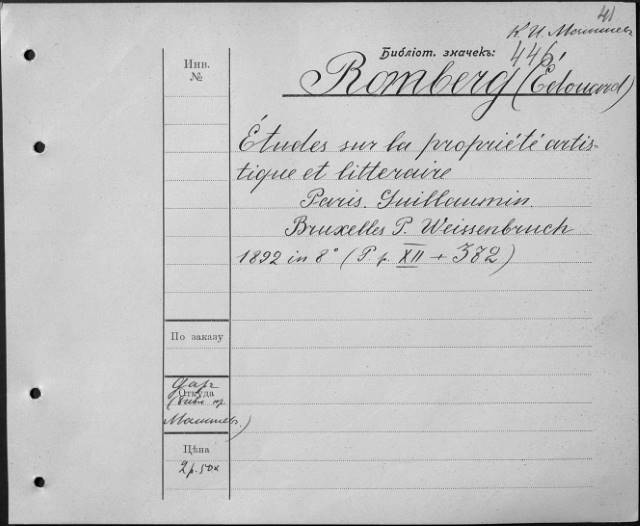 41
К. И. Малышев
Библіот. значекъ: 446
Инв.
№
Romberg (Édouard)
Études sur la propriété artis-
tique et litteraire
Paris. Guillaumin.
Bruxelles P. Weissenbruch
1892 in 8° (P p. XII + 382)
По заказу
Даръ
Откуда
Малышев.)
Цѣна
2 р. 50 к